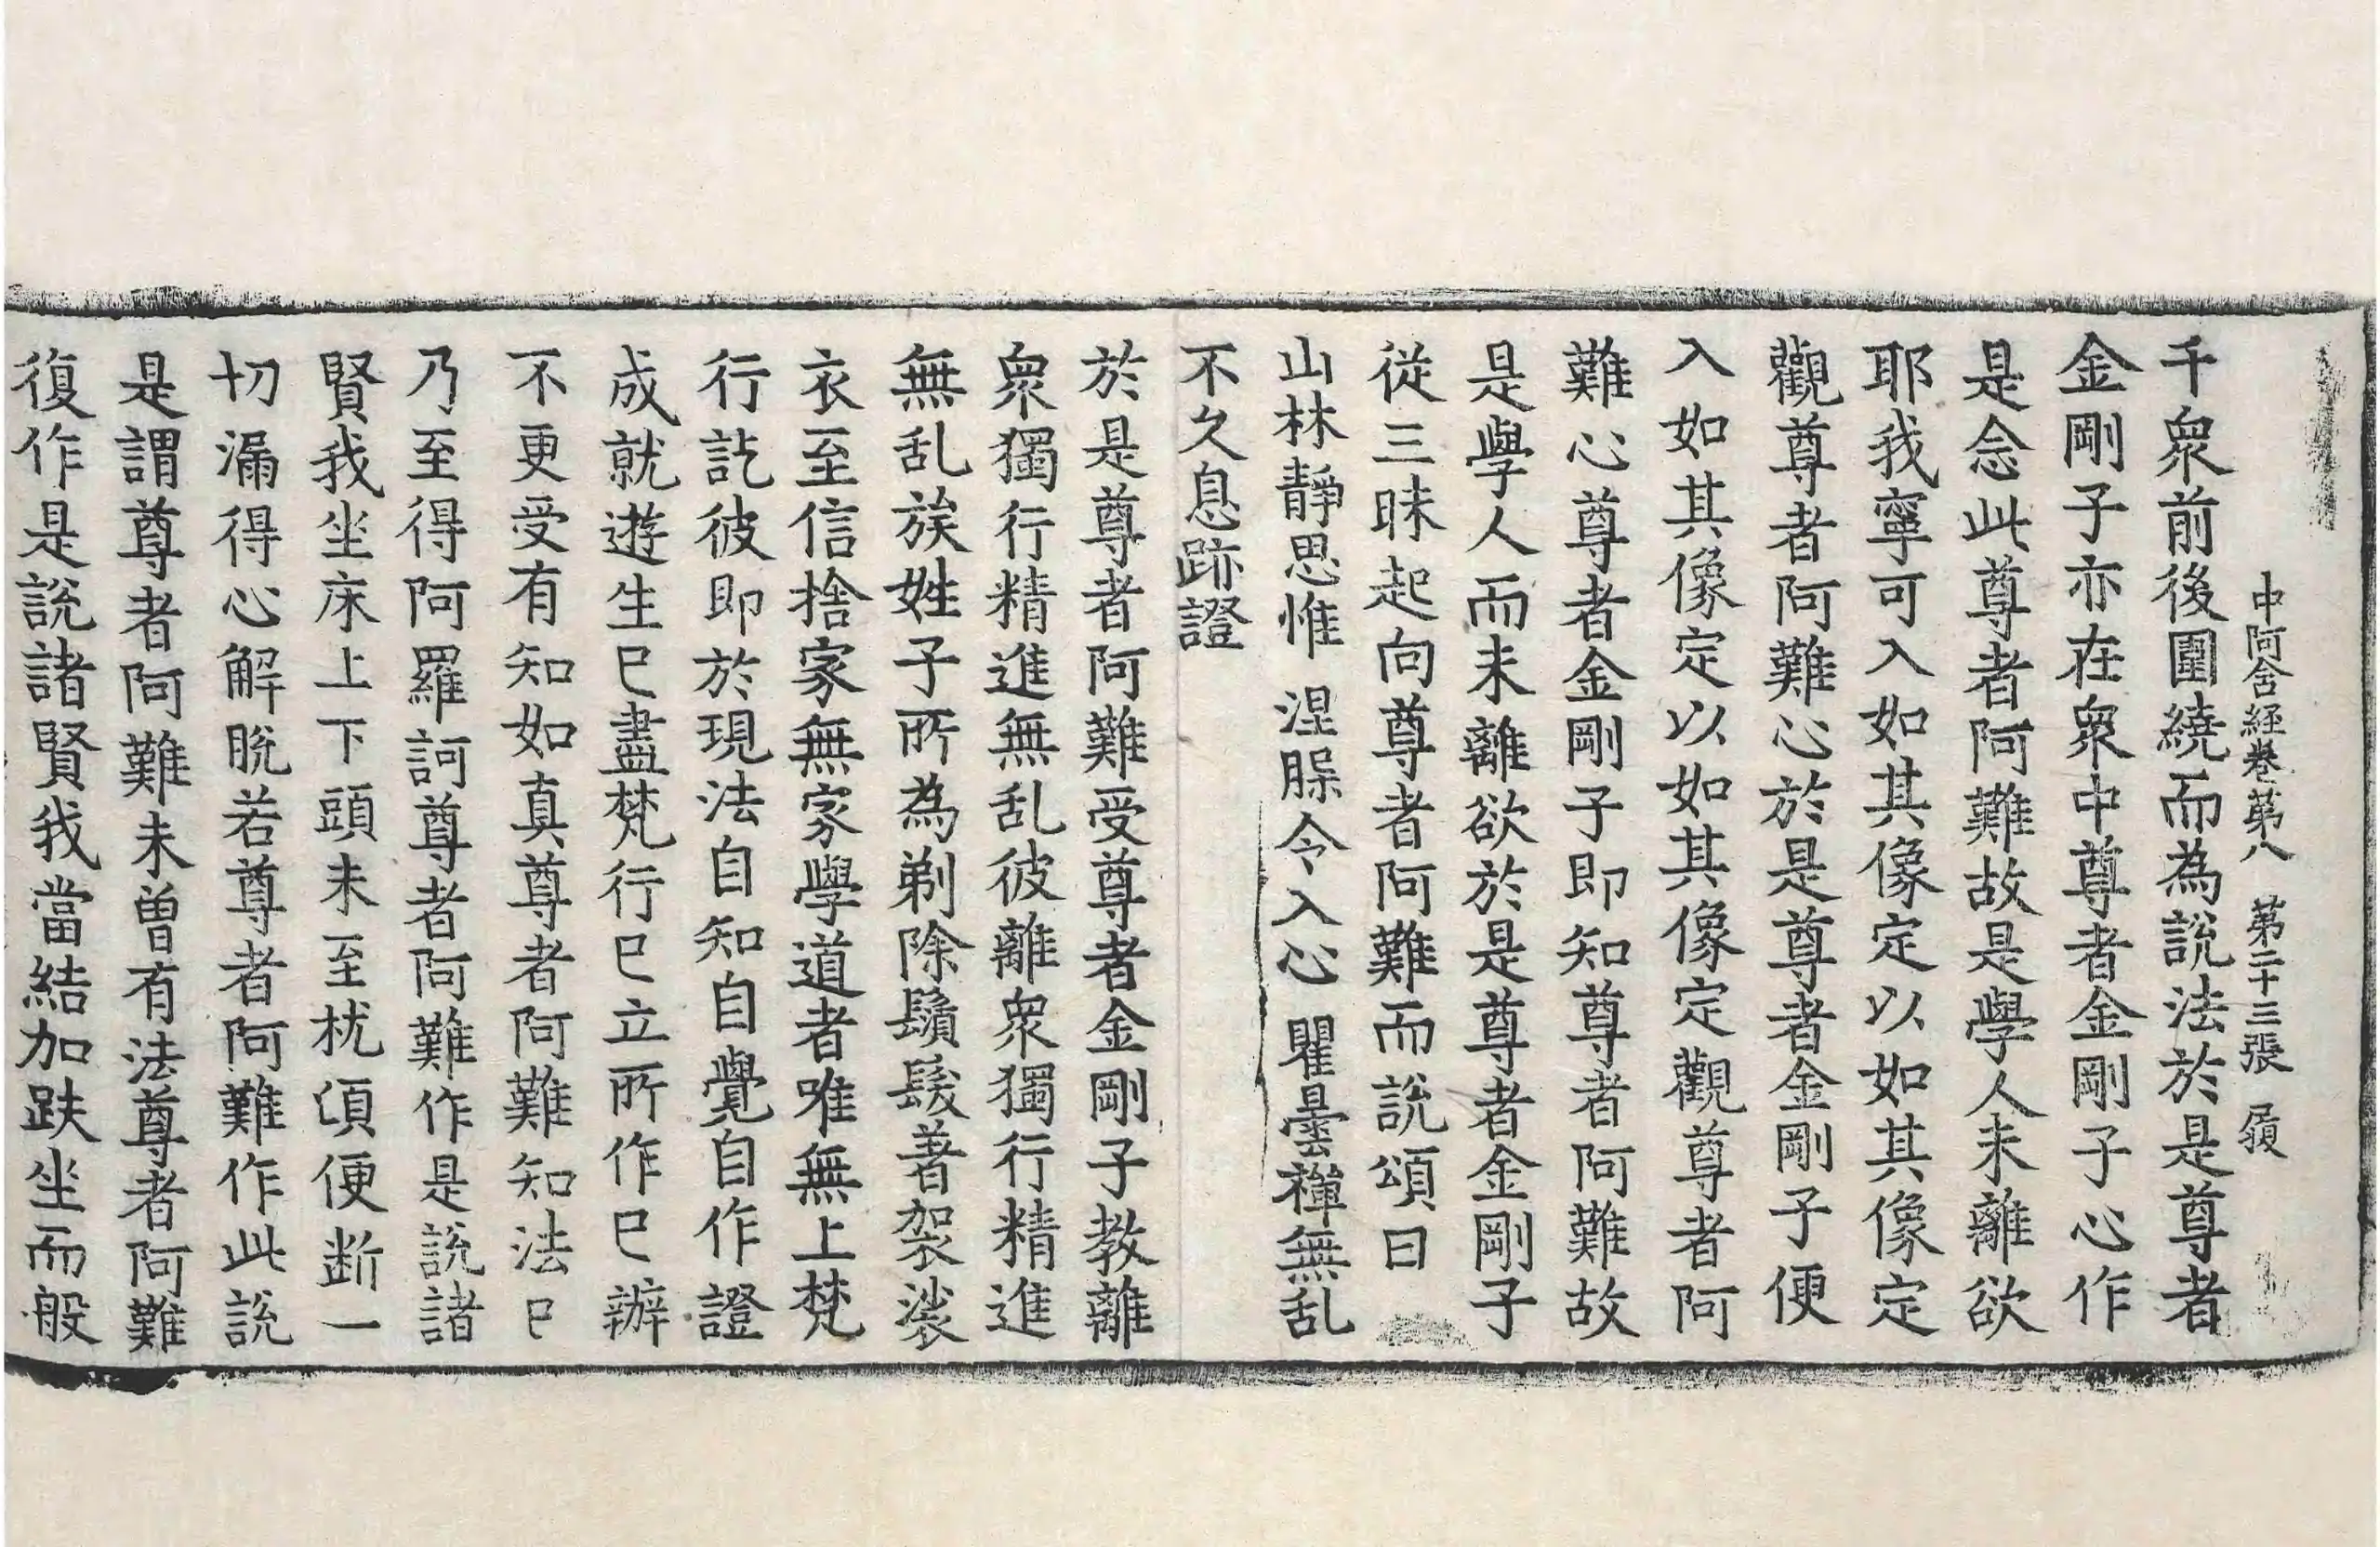 中阿含経巻苐八 苐二十三張 履
千衆前後圍繞而為說法於是尊者
金剛子亦在衆中尊者金剛子心作
是念此尊者阿難故是學人未離欲
耶我寧可入如其像定以如其像定
觀尊者阿難心於是尊者金剛子便
入如其像定以如其像定觀尊者阿
難心尊者金剛子即知尊者阿難故
是學人而未離欲於是尊者金剛子
從三昧起向尊者阿難而說頌曰
山林靜思惟 涅腜令入心 瞿曇禪無乱
不久息跡證
於是尊者阿難受尊者金剛子教離
衆獨行精進無乱彼離衆獨行精進
無乱族姓子所為剃除鬚髮著袈裟
衣至信捨家無家學道者唯無上梵
行訖彼即於現法自知自覺自作證
成就遊生已盡梵行已立所作已辦
不更受有知如真尊者阿難知法已
乃至得阿羅訶尊者阿難作是說諸
賢我坐床上下頭未至枕頃便断一
切漏得心解脫若尊者阿難作此說
是謂尊者阿難未曽有法尊者阿難
復作是說諸賢我當結加趺坐而般